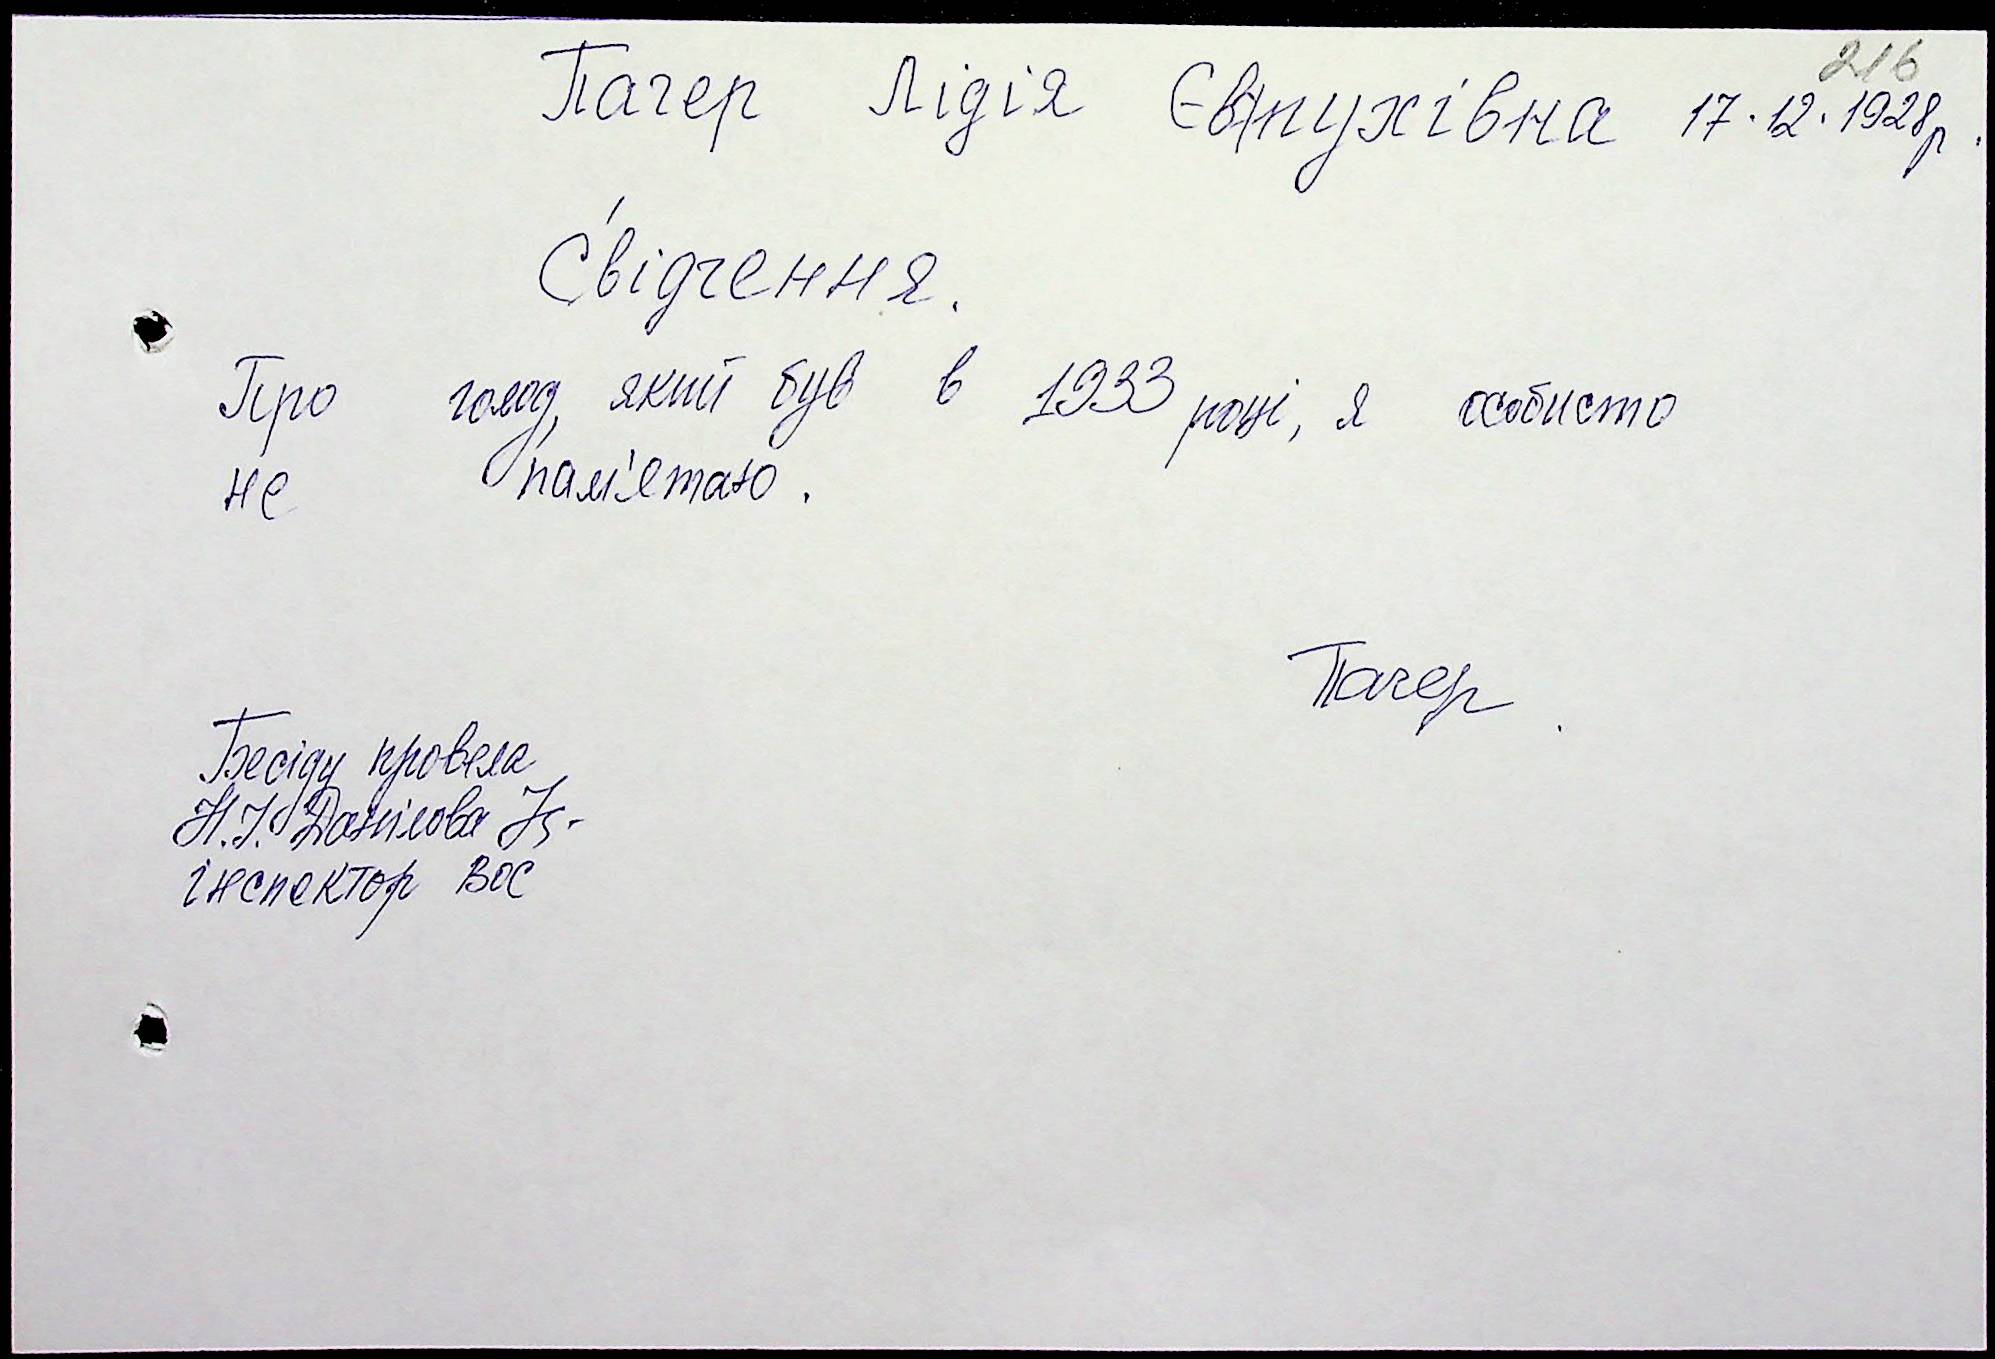 216
Пагер Лідія Євнухівна 17.12.1928р.
Свідчення.
Про голод, який був в 1933 році, я особисто
не пам'ятаю.
Пагер.
Бесіду провела
Н.І. Данілова
інспектор ВОС